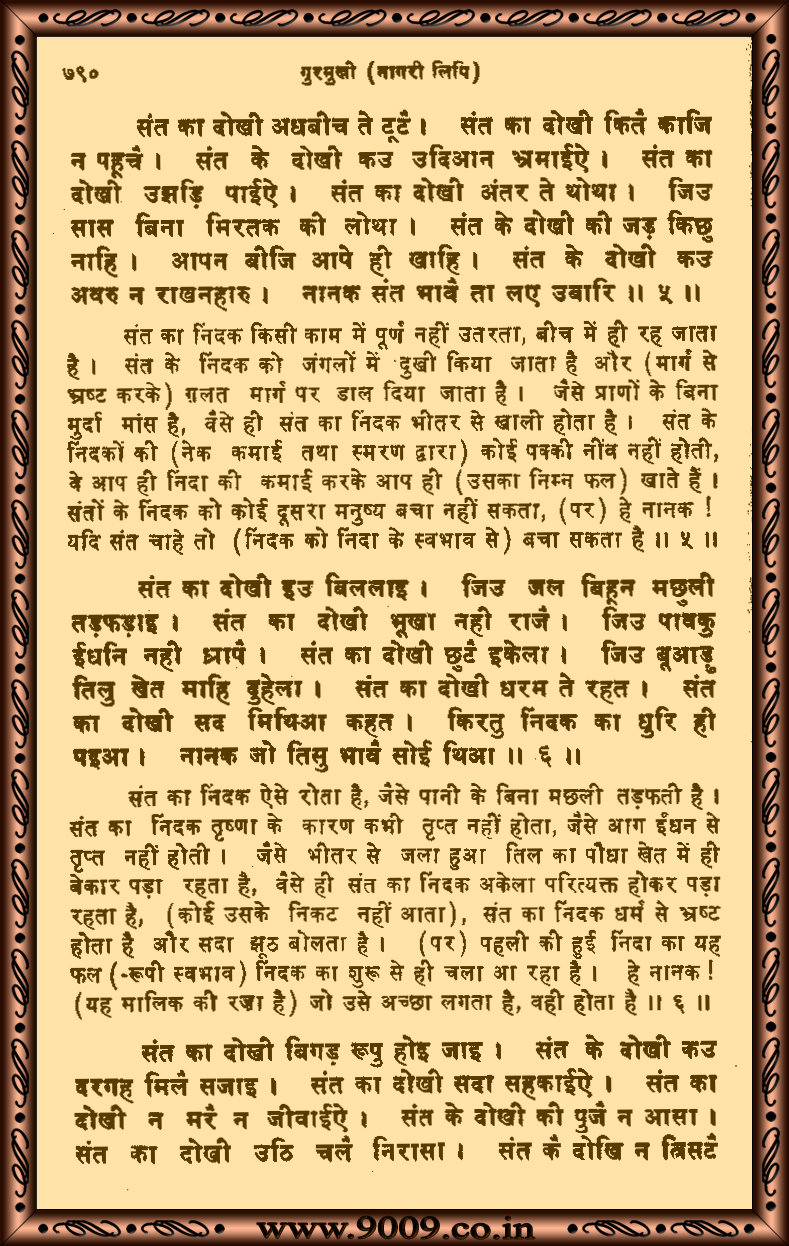 ७९०
गुरमुखी (नागरी लिपि)
संत का दोखी अधबीच ते टूटै । संत का दोखी कितै काजि
न पहूचै । संत के दोखी कउ उदिआन भ्रमाईऐ । संत का
दोखी उझड़ि पाईऐ । संत का दोखी अंतर ते थोथा । जिउ
सास बिना मिरतक की लोथा । संत के दोखी की जड़ किछु
नाहि । आपन बीजि आपे ही खाहि । संत के दोखी कउ
अवरु न राखनहारु । नानक संत भावै ता लए उबारि ॥ ५ ॥
संत का निंदक किसी काम में पूर्ण नहीं उतरता, बीच में ही रह जाता
है । संत के निंदक को जंगलों में दुखी किया जाता है और (मार्ग से
भ्रष्ट करके) ग़लत मार्ग पर डाल दिया जाता है । जैसे प्राणों के बिना
मुर्दा मांस है, वैसे ही संत का निंदक भीतर से खाली होता है । संत के
निंदकों की (नेक कमाई तथा स्मरण द्वारा) कोई पक्की नींव नहीं होती,
वे आप ही निंदा की कमाई करके आप ही (उसका निम्न फल) खाते हैं ।
संतों के निंदक को कोई दूसरा मनुष्य बचा नहीं सकता, (पर) हे नानक !
यदि संत चाहे तो (निंदक को निंदा के स्वभाव से) बचा सकता है ॥ ५ ॥
संत का दोखी इउ बिललाइ । जिउ जल बिहून मछुली
तड़फड़ाइ । संत का दोखी भूखा नही राजै । जिउ पावकु
ईधनि नही ध्रापै । संत का दोखी छुटै इकेला । जिउ बूआड़ु
तिलु खेत माहि दुहेला । संत का दोखी धरम ते रहत । संत
का दोखी सद मिथिआ कहत । किरतु निंदक का धुरि ही
पइआ । नानक जो तिसु भावै सोई थिआ ॥ ६ ॥
संत का निंदक ऐसे रोता है, जैसे पानी के बिना मछली तड़फती है ।
संत का निंदक तृष्णा के कारण कभी तृप्त नहीं होता, जैसे आग ईंधन से
तृप्त नहीं होती । जैसे भीतर से जला हुआ तिल का पौधा खेत में ही
बेकार पड़ा रहता है, वैसे ही संत का निंदक अकेला परित्यक्त होकर पड़ा
रहता है, (कोई उसके निकट नहीं आता), संत का निंदक धर्म से भ्रष्ट
होता है और सदा झूठ बोलता है । (पर) पहली की हुई निंदा का यह
फल (-रूपी स्वभाव) निंदक का शुरू से ही चला आ रहा है । हे नानक !
(यह मालिक की रज़ा है) जो उसे अच्छा लगता है, वही होता है ॥ ६ ॥
संत का दोखी बिगड़ रूपु होइ जाइ । संत के दोखी कउ
दरगह मिलै सजाइ । संत का दोखी सदा सहकाईऐ । संत का
दोखी न मरै न जीवाईऐ । संत के दोखी की पुजै न आसा ।
संत का दोखी उठि चलै निरासा । संत कै दोखि न त्रिसटै
www.9009.co.in